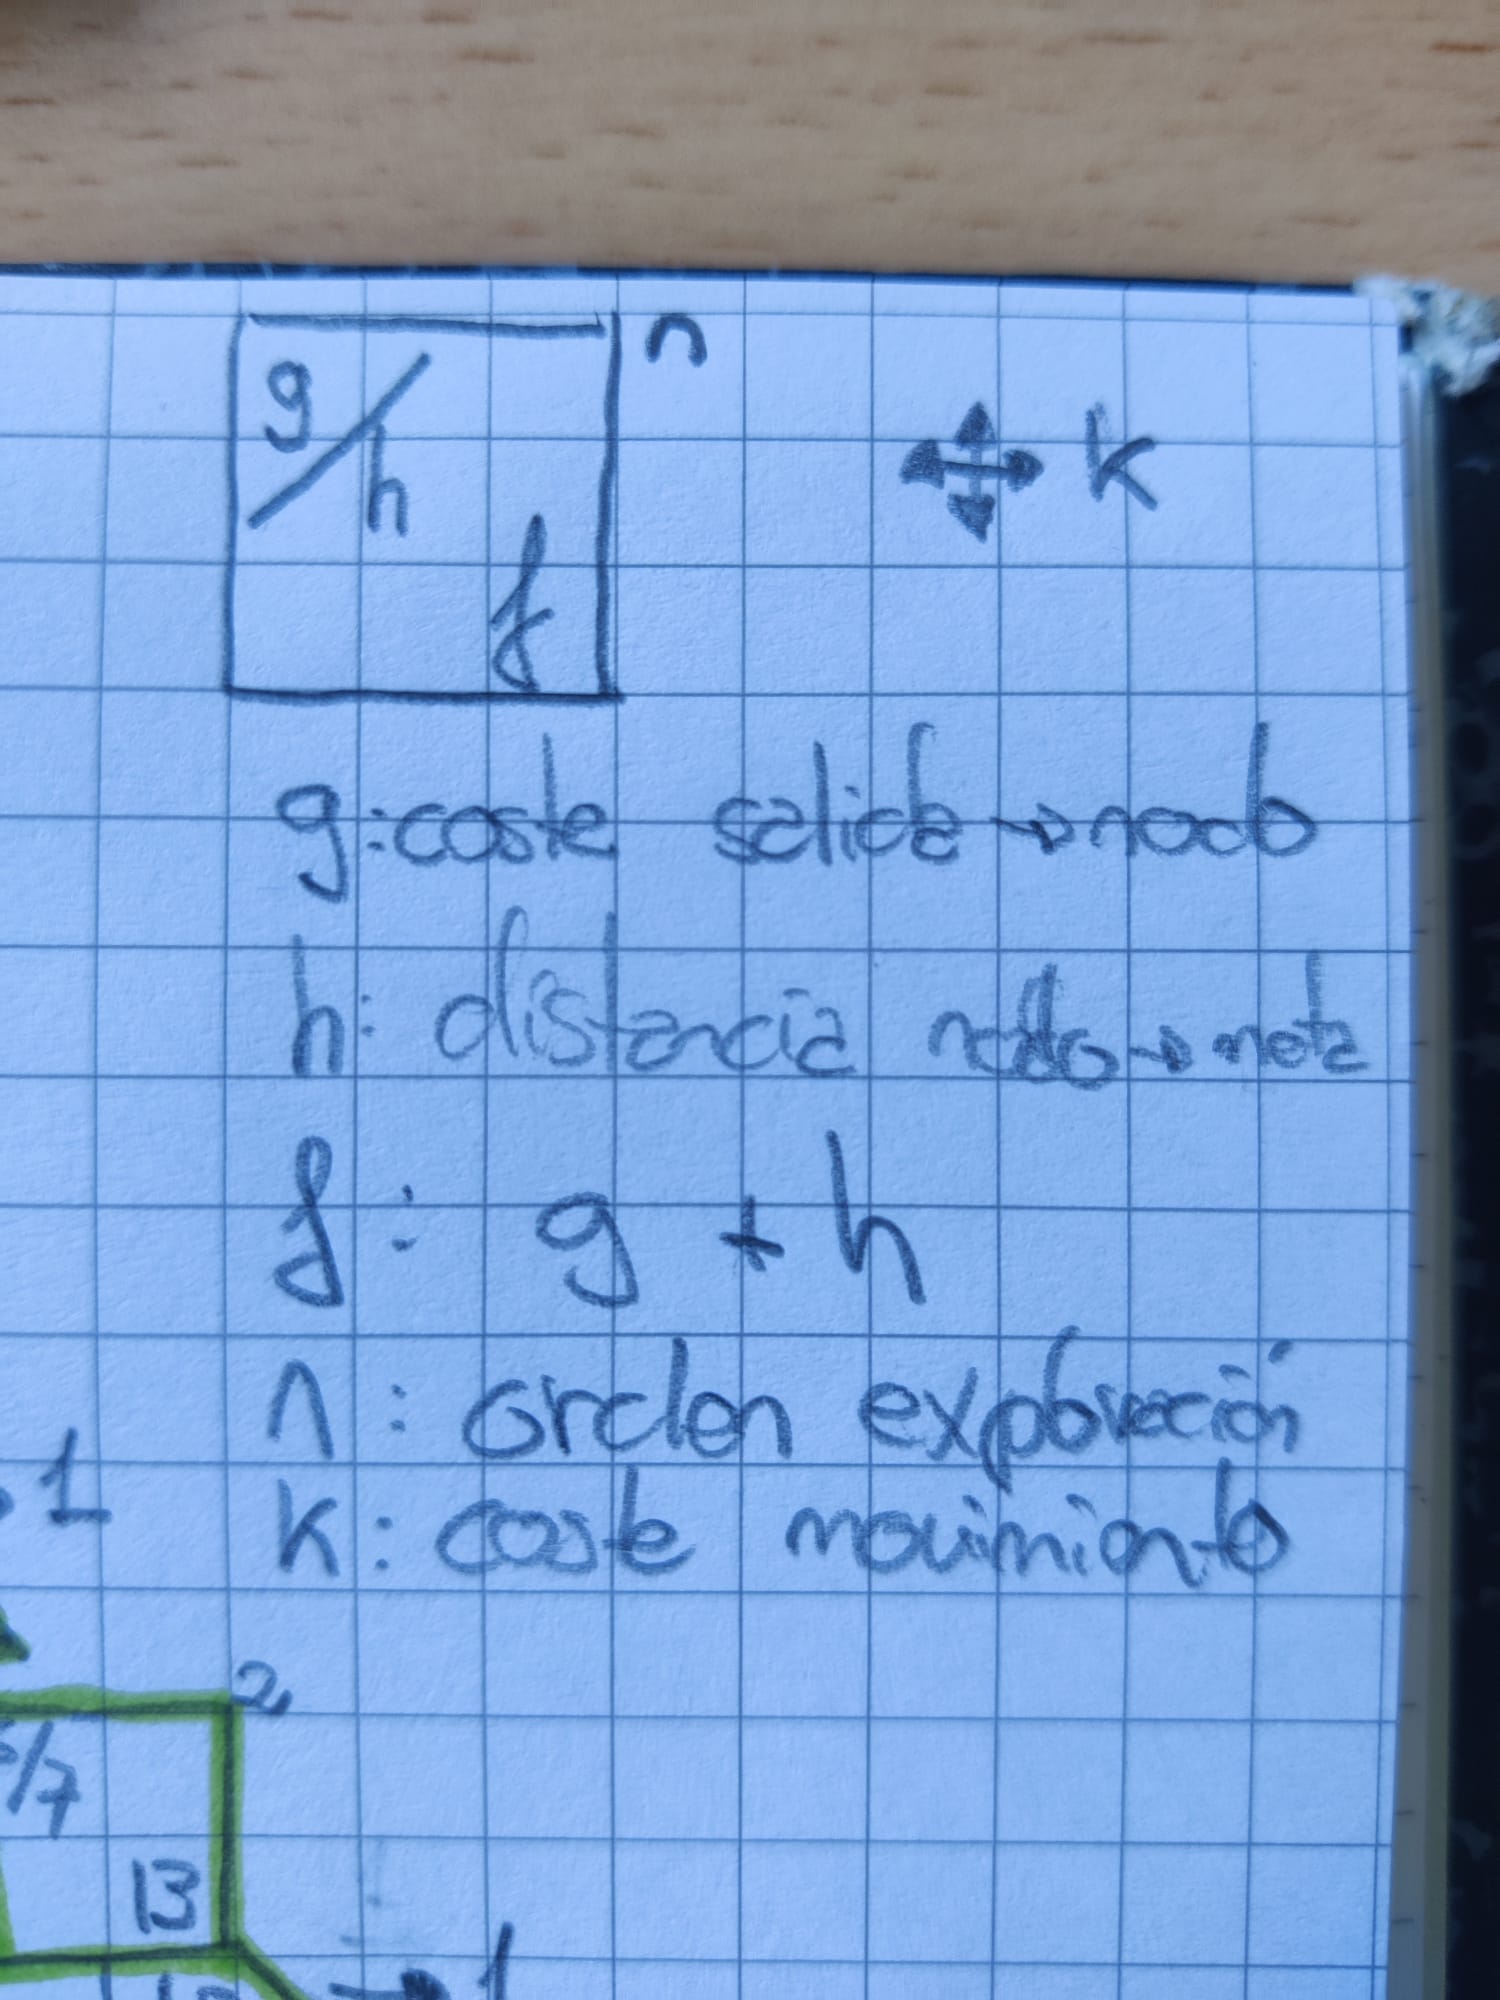 g/h n
k
f
g: coste salida → nodo
h: distancia nodo → meta
f: g + h
n: orden exploración
k: coste movimiento
1
2
/7
13
→ 1